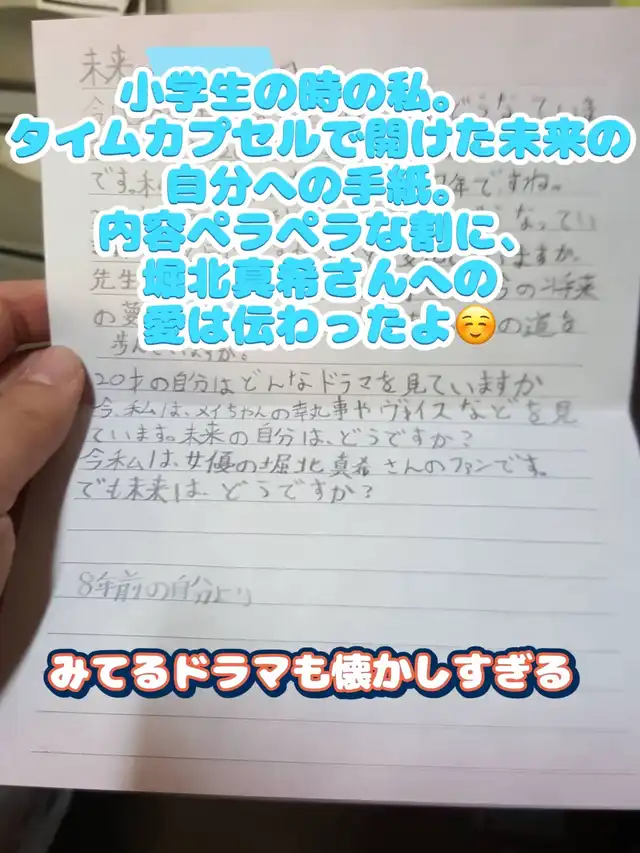 未来
小学生の時の私。
タイムカプセルで開けた未来の
自分への手紙。
内容ペラペラな割に、
堀北真希さんへの
愛は伝わったよ☺️
どうなっていま
です。
年ですね。
なってい
ますか。
先生
の将来
の道を
歩んでいますか。
20才の自分はどんなドラマを見ていますか
今、私は、メイちゃんの執事やヴォイスなどを見
ています。未来の自分は、どうですか?
今私は、女優の堀北真希さんのファンです。
でも未来は、どうですか?
8年前の自分より
みてるドラマも懐かしすぎる